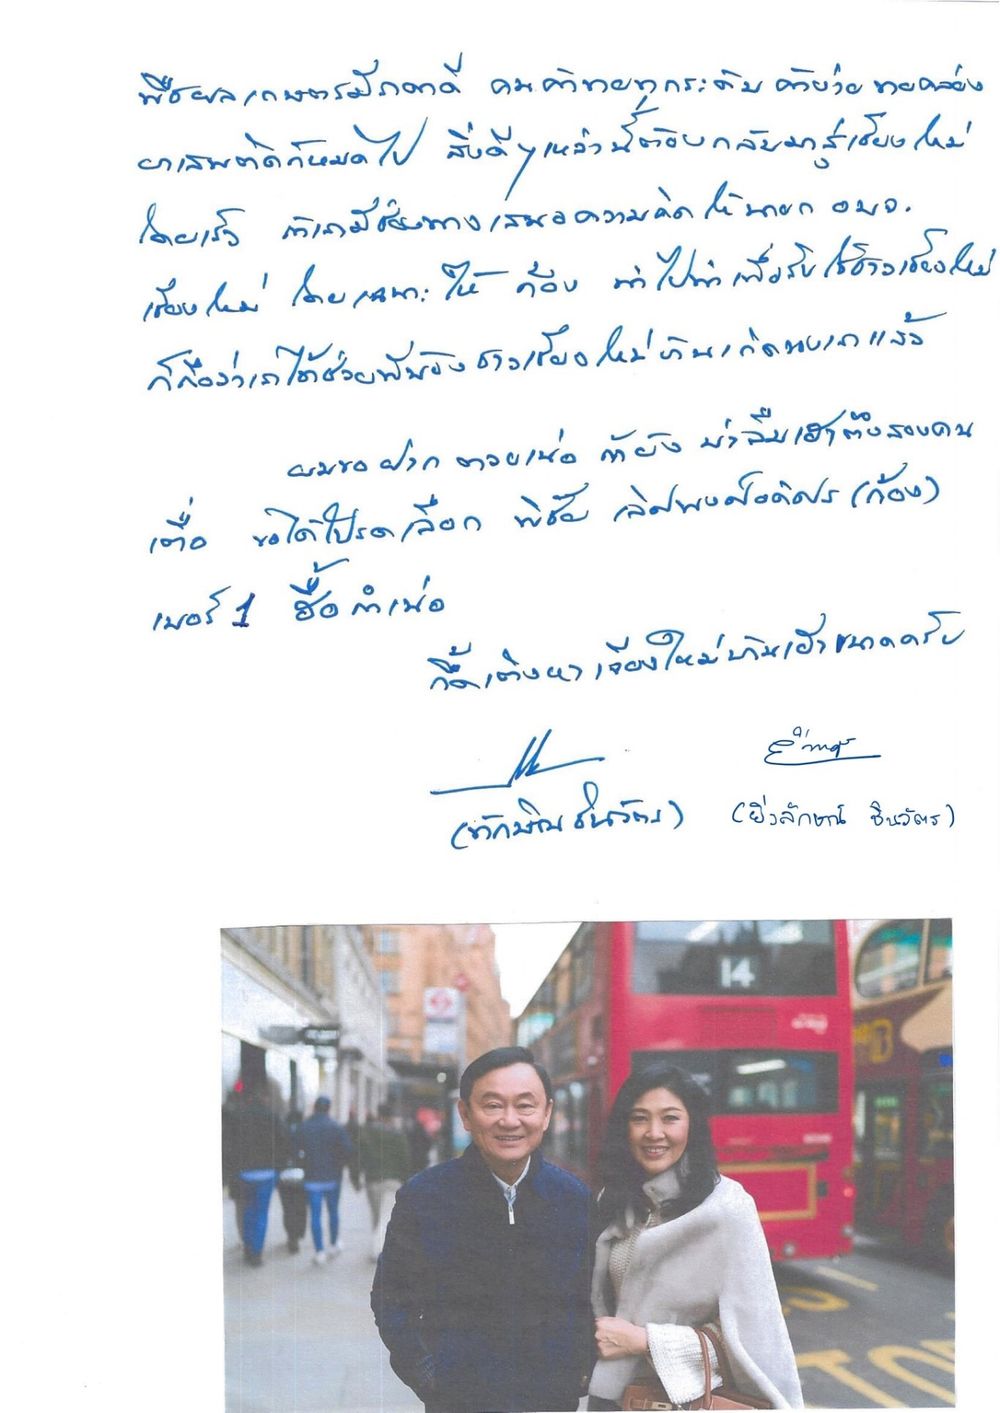 พืชผลเกษตรมีราคาดี คนค้าขายทุกระดับ ค้าง่าย ขายคล่อง
ยาเสพติดก็หมดไป สิ่งดีๆเหล่านี้ต้องกลับมาสู่เชียงใหม่
โดยเร็ว ถ้าเรามีช่องทางเสนอความคิดให้นายก อบจ.
เชียงใหม่ โดยเฉพาะให้ ก้อง นำไปทำเพื่อรับใช้ชาวเชียงใหม่
ก็ถือว่าเราได้ช่วยพี่น้องชาวเชียงใหม่บ้านเกิดของเราแล้ว
ผมขอฝากตวยเน่อ ถ้ายัง บ่าลืมเฮาตึงสองคน
เตื่อ ขอได้โปรดเลือก พิชัย เลิศพงศ์อดิศร (ก้อง)
เบอร์ 1 ฮื้อกำเน่อ
กึ๊ดเติงหาเจียงใหม่บ้านเฮาขนาดครับ
(ทักษิณ ชินวัตร)
(ยิ่งลักษณ์ ชินวัตร)
14